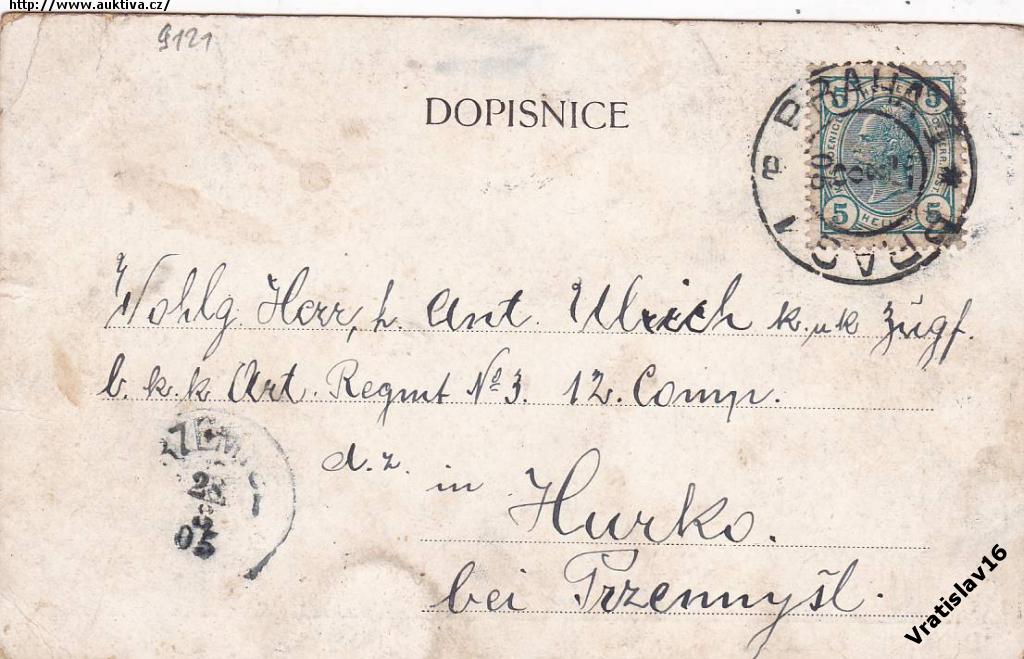 http://www.auktiva.cz/
9121
DOPISNICE
5 HELLER 5
5 HELLER 5
PRAHA 1
PRAG 1
Wohlg. Herr, h. Ant. Ulrich k. u k Zugf.
b. k. k Art. Regmt No 3. 12. Comp.
d. z. in Hurko.
bei Przemyśl.
28
8
05
Vratislav16